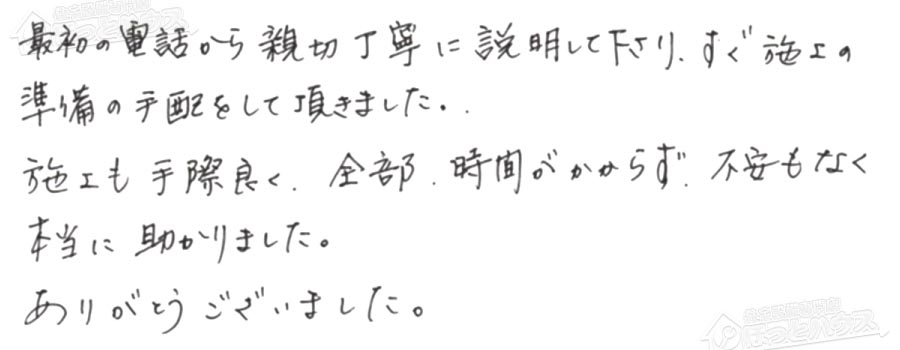 最初の電話から親切丁寧に説明して下さり、すぐ施工の
準備の手配をして頂きました。
施工も手際良く、全部、時間がかからず、不安もなく
本当に助かりました。
ありがとうございました。
ほっとハウス